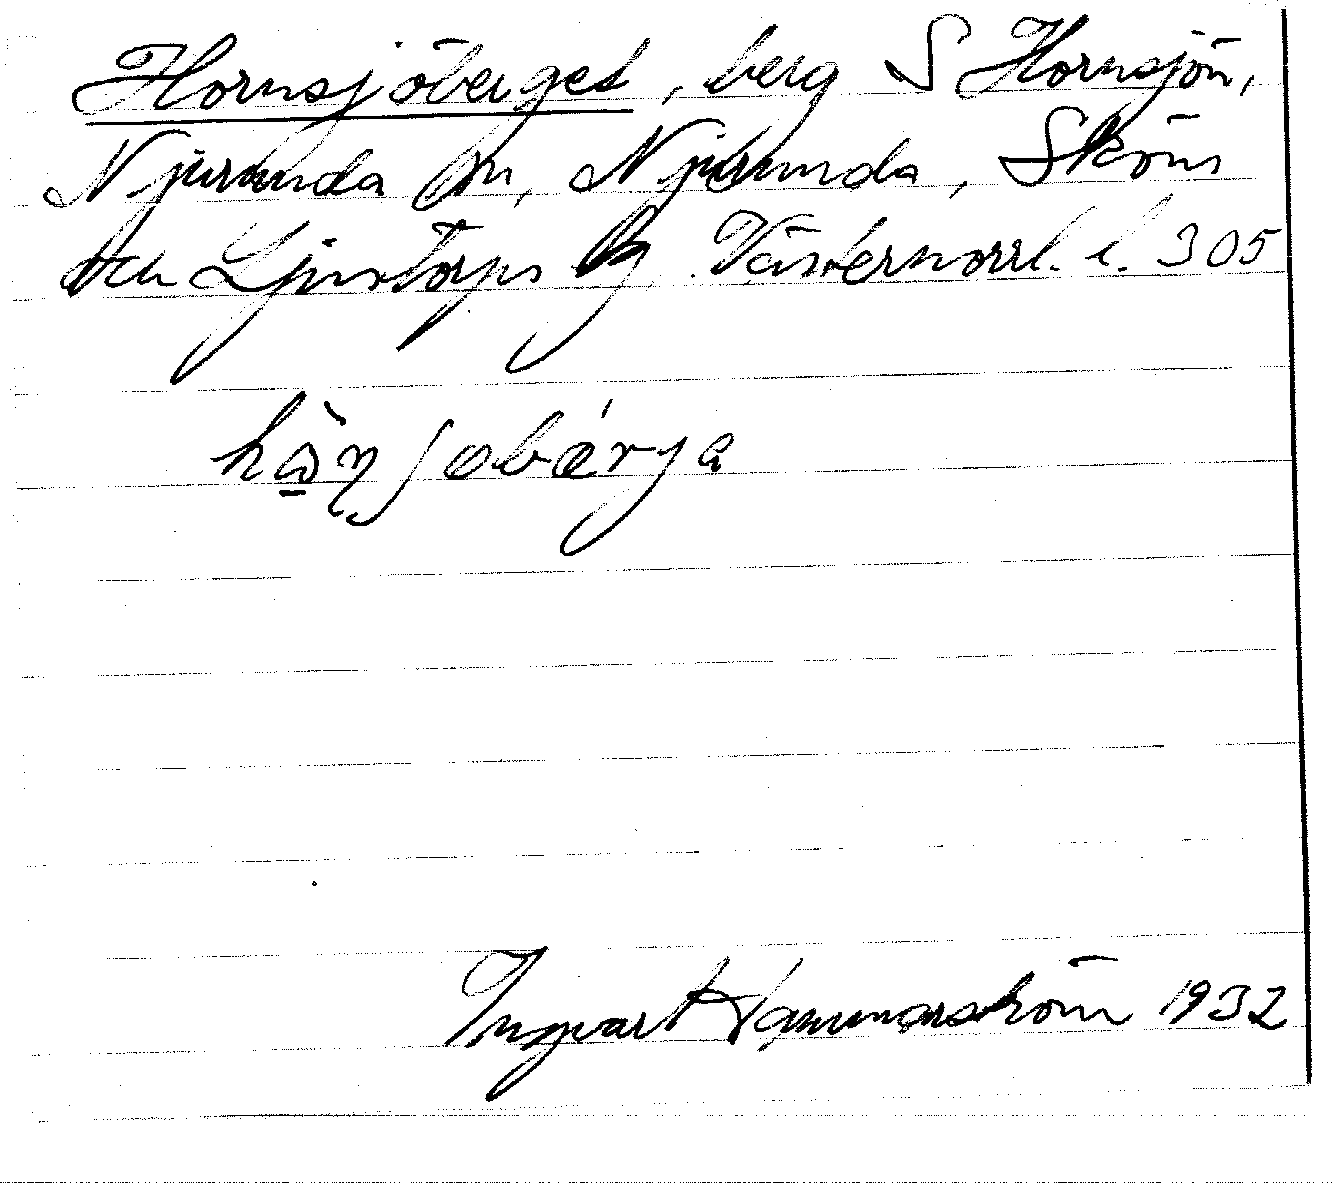 Hornsjöberget, berg S Hornsjön,
Njurunda sn, Njurunda, Sköns
och Ljustorps tg Västernorrl. l. 305
Ingvart Hammarström 1932